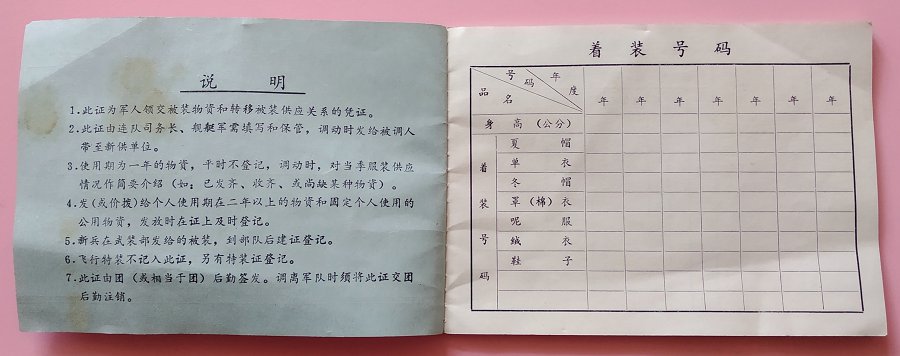 说 明
1.此证为军人领交被装物资和转移被装供应关系的凭证。
2.此证由连队司务长、舰艇军需填写和保管，调动时发给被调人
带至新供单位。
3.使用期为一年的物资，平时不登记，调动时，对当季服装供应
情况作简要介绍（如：已发齐、收齐、或尚缺某种物资）。
4.发(或价拨)给个人使用期在二年以上的物资和固定个人使用的
公用物资，发放时在证上及时登记。
5.新兵在武装部发给的被装，到部队后建证登记。
6.飞行特装不记入此证，另有特装证登记。
7.此证由团（或相当于团）后勤签发。调离军队时须将此证交团
后勤注销。
着 装 号 码
号 码 年 度
品 名
年 年 年 年 年 年 年
身 高（公分）
着 装 号 码
夏 帽
单 衣
冬 帽
罩（棉）衣
呢 服
绒 衣
鞋 子